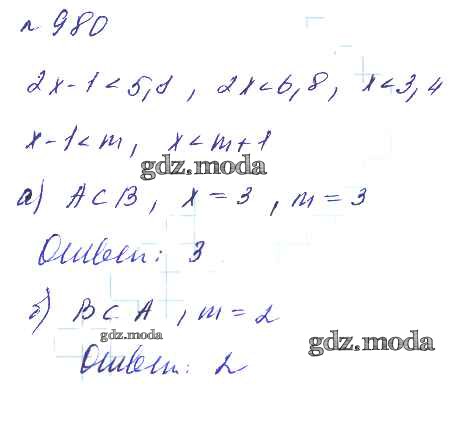 n 980
2x-1<5,8, 2x<6,8, x<3,4
x-1<m, x<m+1
gdz.moda
а) A⊂B, x=3, m=3
Ответ: 3
б) B⊂A, m=2
gdz.moda
Ответ: 2
gdz.moda